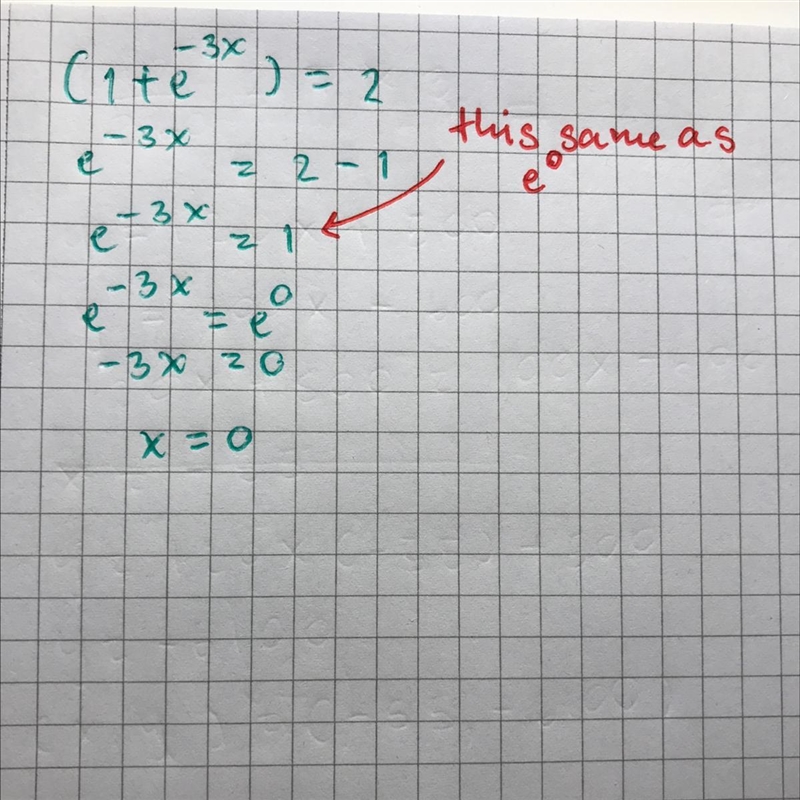 (1+e^-3x) = 2
e^-3x = 2 - 1
this same as
e^0
e^-3x = 1
e^-3x = e^0
-3x = 0
x = 0